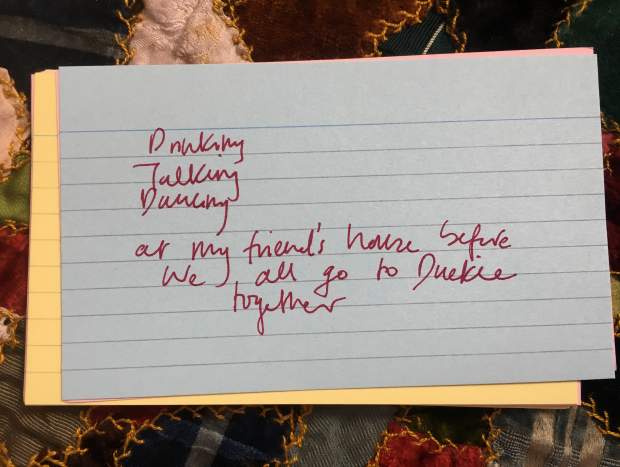 Drinking
Talking
Dancing
at my friend's house before
we all go to Duckie
together